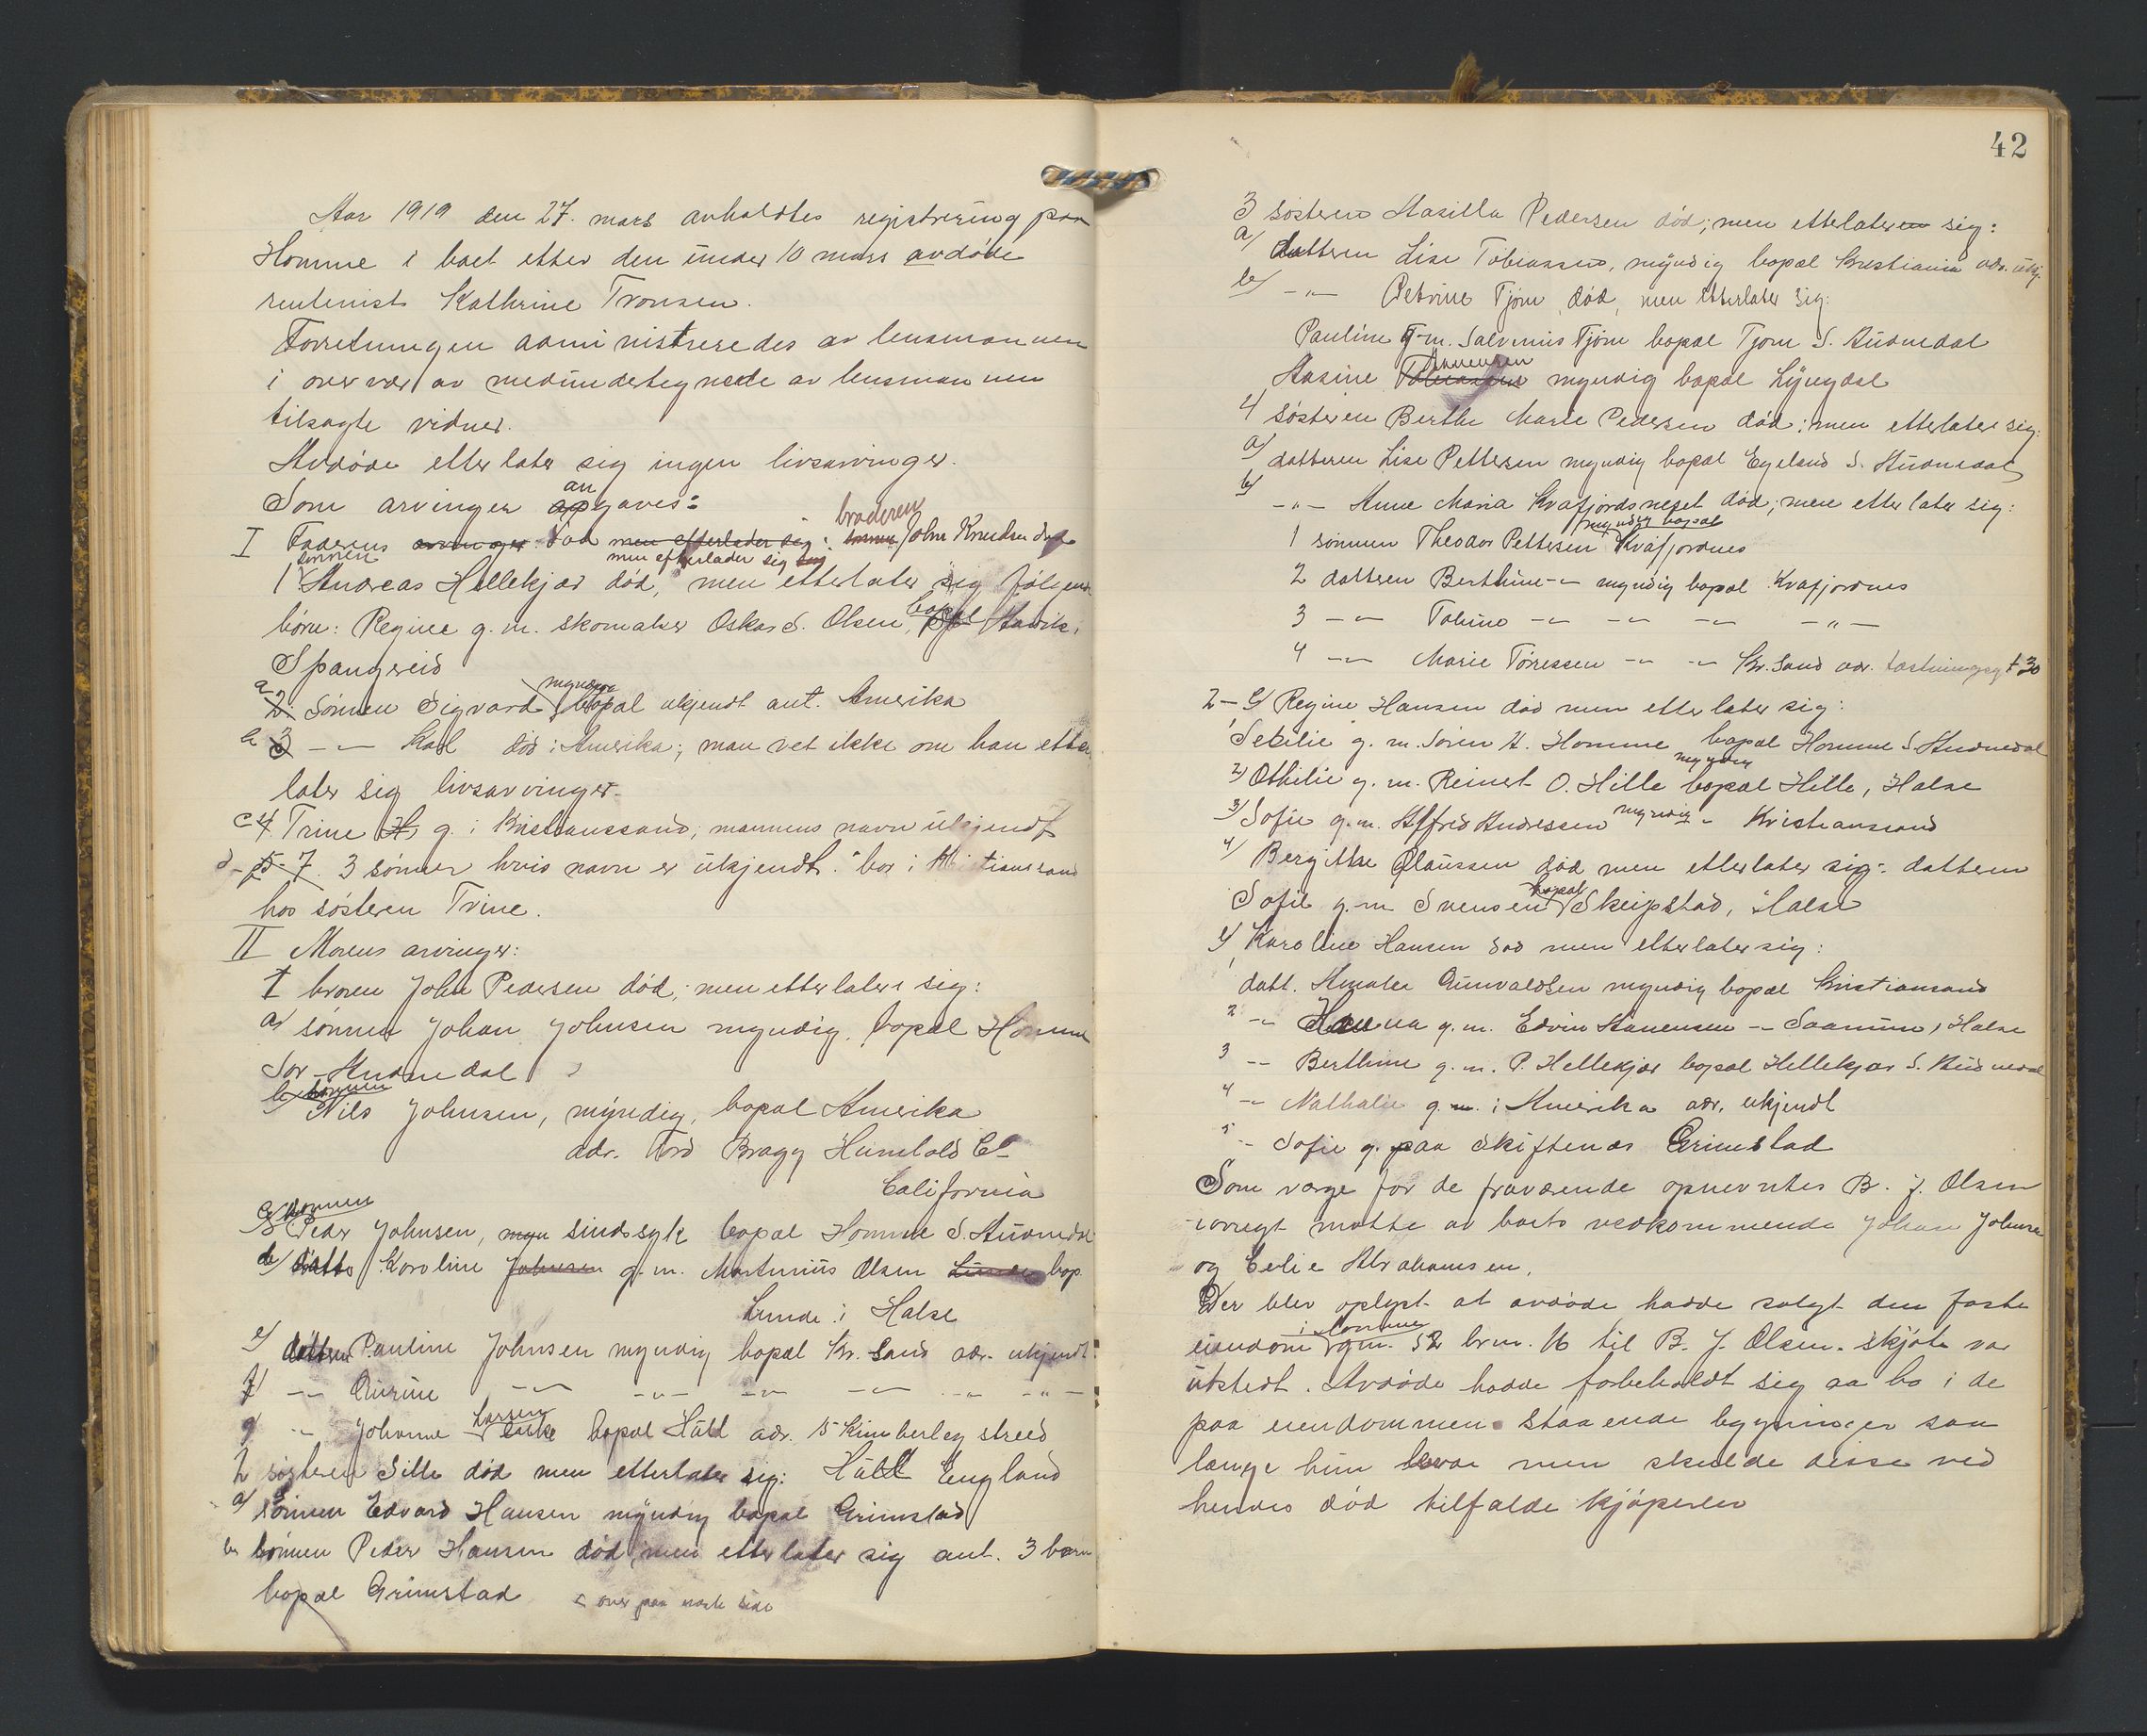 Aar 1919 den 27. mars avholdtes registrering paa
Homme i boet etter den under 10 mars avdøde
rentenist Kathrine Tronsen.
Forretningen administreredes av lensmannen
i overvær av medundertegnede av lensmannen
tilsagte vidner.
Avdøde etterlater sig ingen livsarvinger.
Som arvinger angaves:
I Faderens arvinger: død men efterlader sig: broderen John Knudsen død
sønnen men efterlader sig
1 Andreas Hellekjær død, men etterlater sig følgende
børn: Regine g. m. skomaker Oskar S. Olsen, bopæl
Spangereid
a 2 Sønnen Sigvard myndig bopæl ukjendt ant. Amerika
b 3 -"- Karl død i Amerika; man vet ikke om han etter
later sig livsarvinger.
c 4 Trine H. g. i Kristianssand, mannens navn ukjendt
d- 5-7. 3 sønner hvis navn er ukjendt. bor i Kristianssand
hos søsteren Trine.
II Morens arvinger:
1 broren John Pedersen død; men etterlater sig:
a) sønnen Johan Johnsen myndig. bopæl Homme
Sør-Audnedal
b) sønnen Nils Johnsen, myndig, bopæl Amerika
adr. Ford Bragg Humbold Co
California
c) sønnen Peder Johnsen, myn sindssyk bopæl Homme S. Audnedal
d) datter Karoline Johnsen g. m. Martinius Olsen bop.
Lunde i Halse
e) datteren Pauline Johnsen myndig bopæl Kr. Sand adr. ukjendt
f) -"- -"- -"- -"- -"- -"- -"-
g -"- Johanne Larsen bopæl Hull adr. 15 Kimberley streed
2 søsteren Sille død men etterlater sig: Hull England
a) sønnen Edvard Hansen myndig bopæl Grimstad
b sønnen Peder Hansen død, men etterlater sig ant. 3 barn
bopæl Grimstad c over paa neste side
42
3 søsteren Hasilla Pedersen død; men etterlateren sig:
a) datteren Lise Tobiassen, myndig bopæl Kristiania adr. ukj.
b) -"- Petrine Tjøm død, men etterlater sig:
Pauline g. m. Salvenius Tjøm bopæl Tjøm S. Audnedal
Hasine Tobiassen myndig bopæl Lyngdal
4 søsteren Berthe Marie Pedersen død; men etterlater sig:
a) datteren Lise Pettersen myndig bopæl Egeland S. Audnedal
b) -"- Anne Maria Kvafjordsneset død; men etterlater sig:
1 sønnen Theodor Pettersen myndig bopæl Kvafjordnes
2 datteren Berthine -"- myndig bopæl Kvafjordnes
3 -"- Tobine -"- -"- -"- -"-
4 -"- Marie Tørressen -"- -"- Kr. Sand adr. 30
2 - c) Regine Hansen død men etterlater sig:
1 Secilie g. m. Søren H. Homme bopæl Homme S. Audnedal
2) Othilie g. m. Reinert O. Hille myndig bopæl Hille, Halse
3) Sofie g. m. Alfred Andressen myndig -"- Kristiansand
4) Bergitte Claussen død men etterlater sig: datteren
Sofie g. m Svensen bopæl Skeipstad, Halse
Karoline Hansen død men etterlater sig:
1 datt. Amalie Gunvaldsen myndig bopæl Kristiansand
2 -"- Hanna g. m. Edvin Hanensen -"- Saanum, Halse
3 -"- Berthine g. m. P. Hellekjær bopæl Hellekjær S. Audnedal
4 -"- Nathalie g. m. i Amerika adr. ukjendt
5 -"- Sofie g. paa Skiftenes Grimstad
Som verge for de fraværende opnevntes B. J. Olsen
iøvrigt møtte av boets vedkommende Johan Johnsen
og Celie Abrahamsen.
Der blev oplyst at avdøde hadde solgt den faste
eiendom i Homme gn. 52 brn. 16 til B. J. Olsen. skjøte var
utstedt. Avdøde hadde forbeholdt sig aa bo i de
paa eiendommen staaende bygninger saa
lange hun levde men skulde disse ved
hendes død tilfalde kjøperen